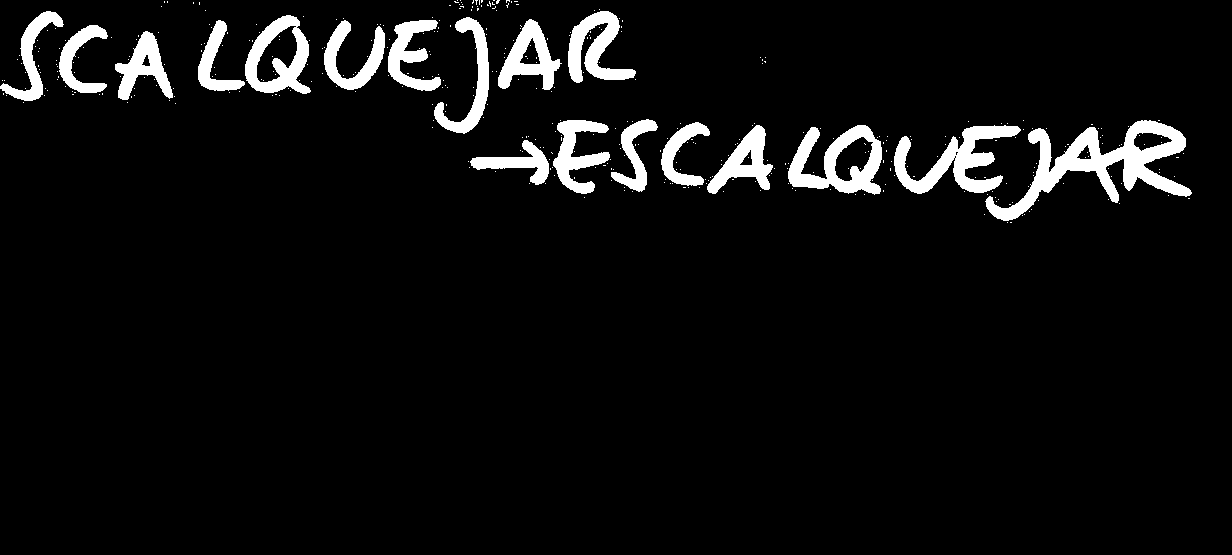 SCALQUEJAR
→ESCALQUEJAR